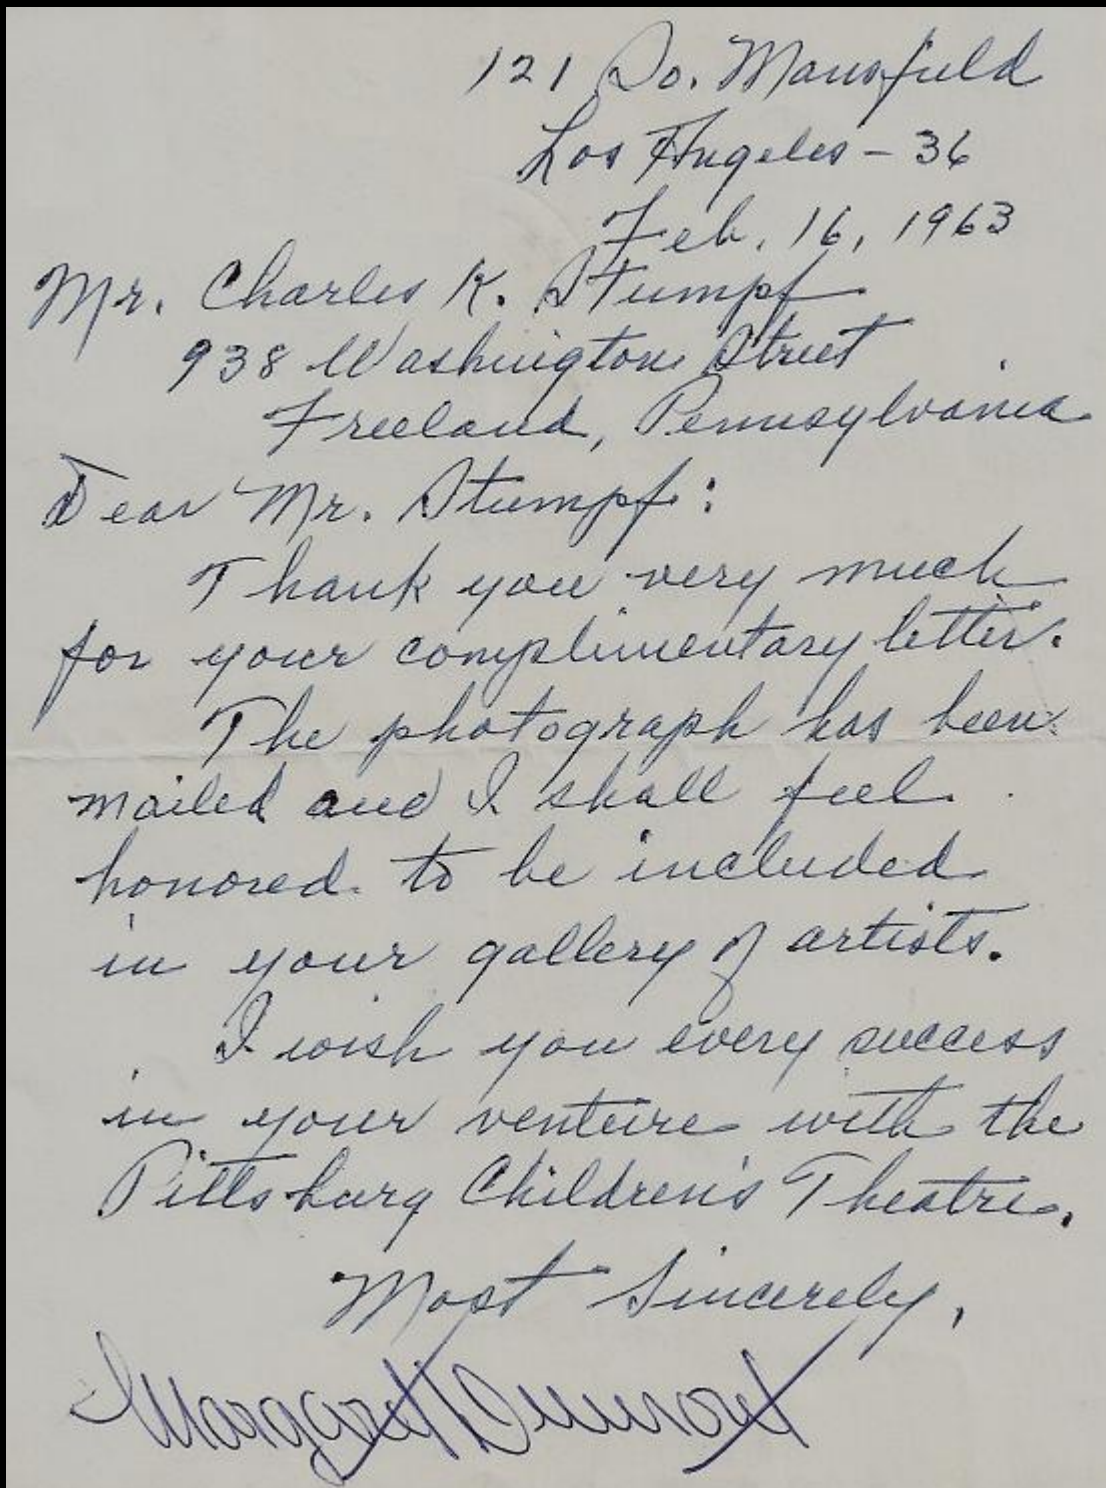 121 So. Mansfield
Los Angeles - 36
Feb. 16, 1963
Mr. Charles K. Stumpf
938 Washington Street
Freeland, Pennsylvania
Dear Mr. Stumpf:
Thank you very much
for your complimentary letter.
The photograph has been
mailed and I shall feel
honored to be included
in your gallery of artists.
I wish you every success
in your venture with the
Pittsburg Children's Theatre.
Most Sincerely,
Margaret Dumont